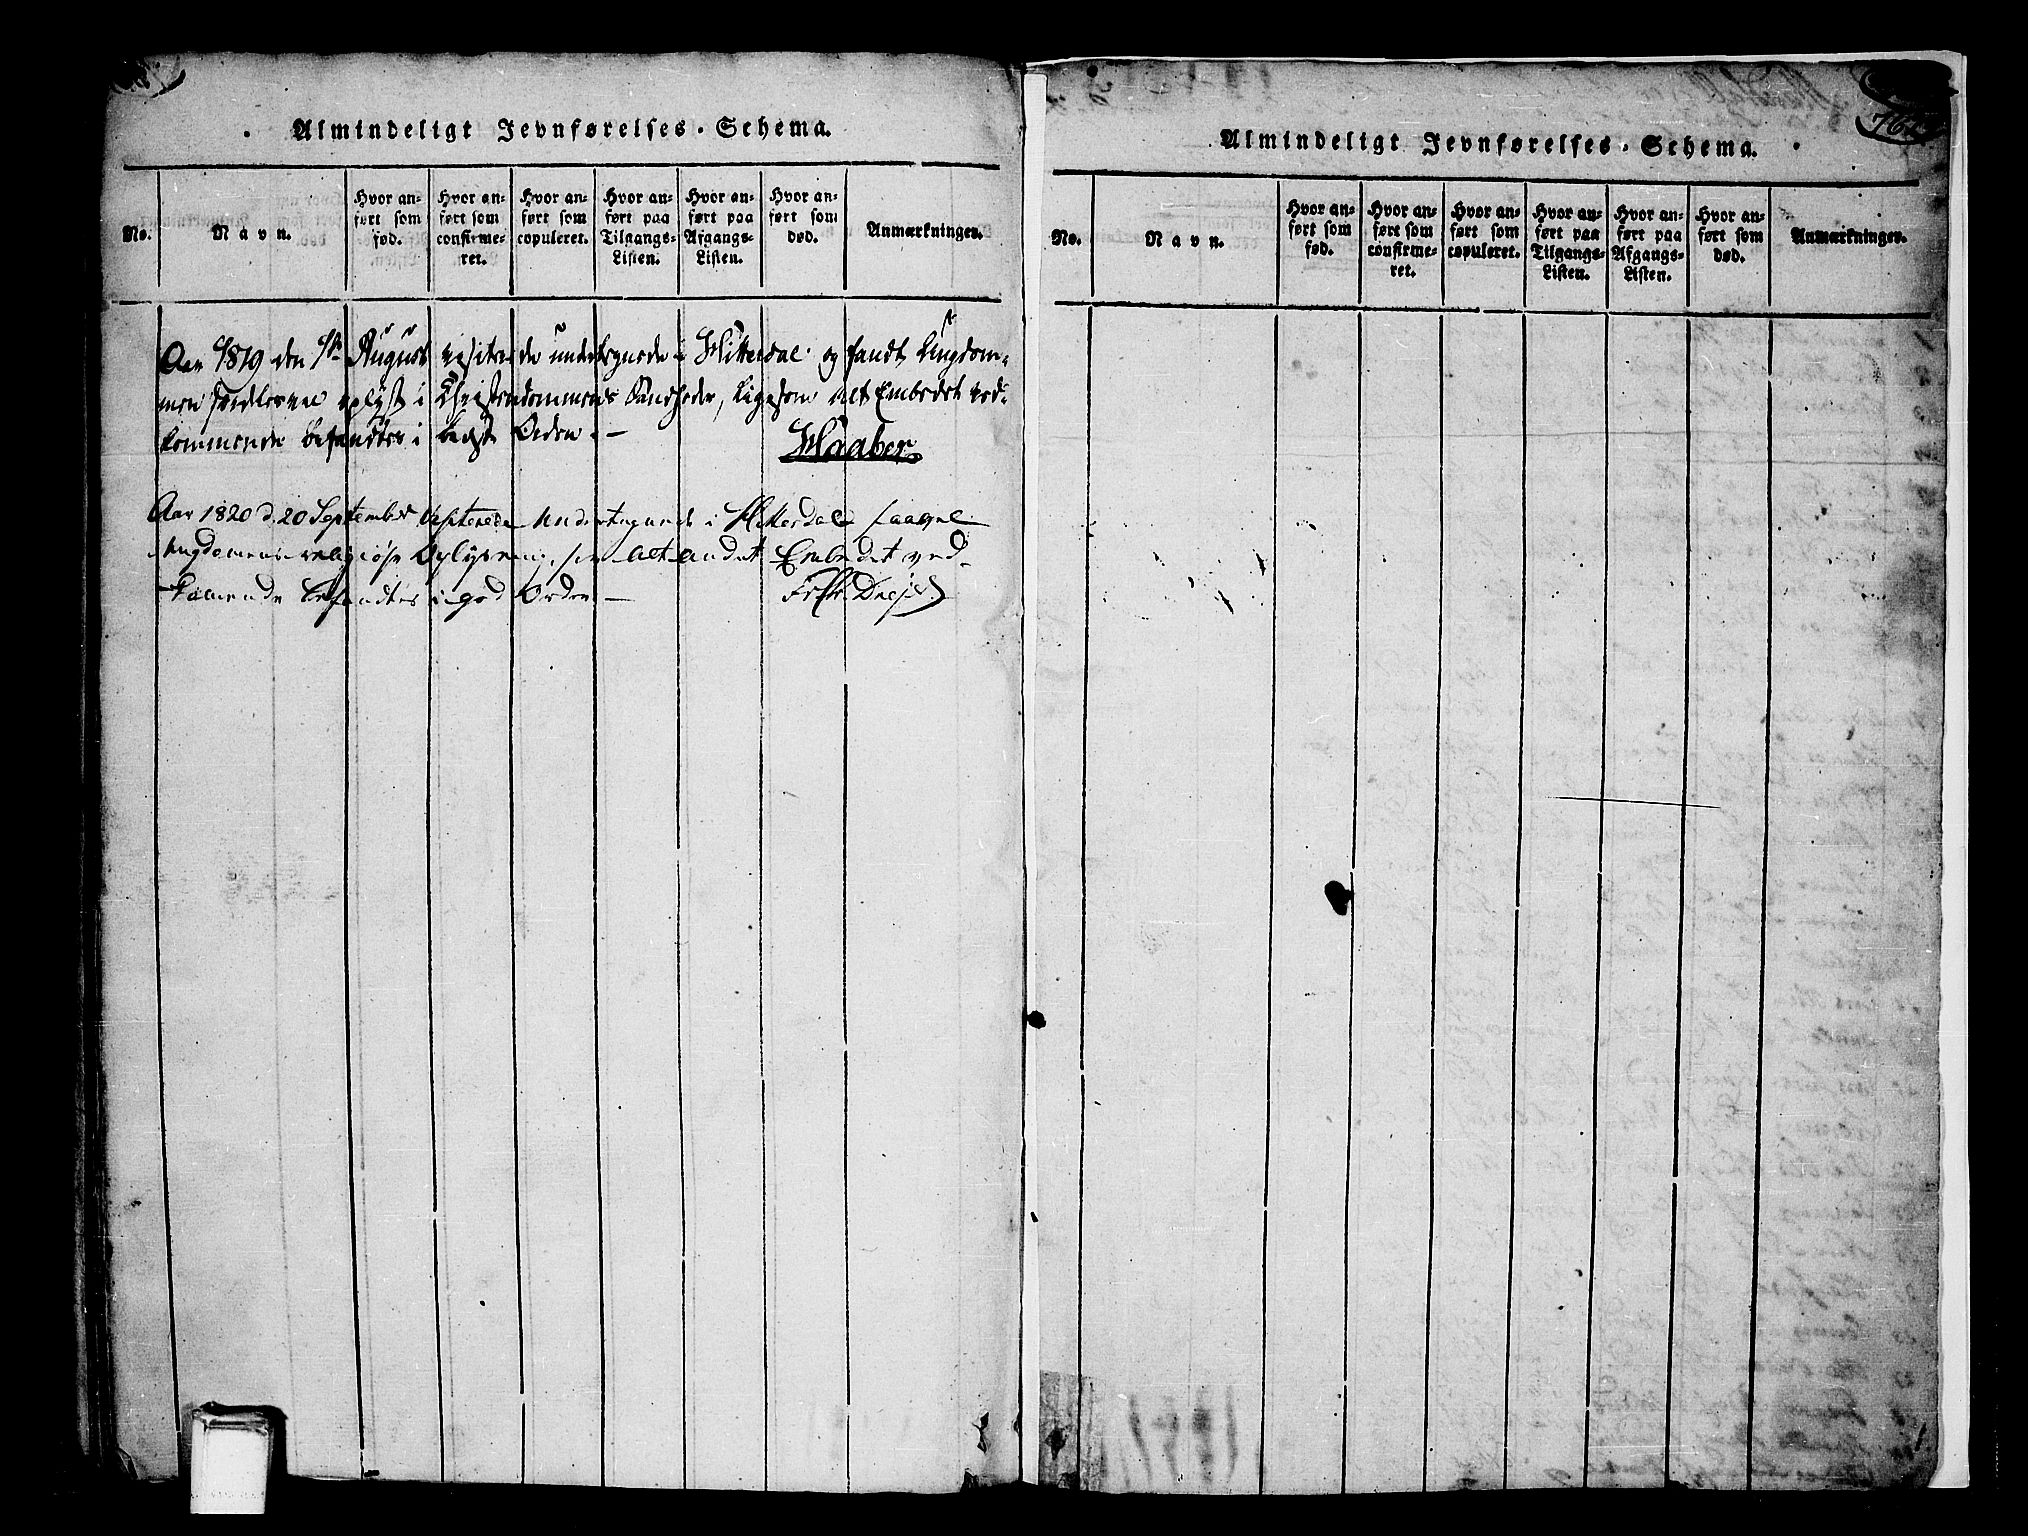 Almindeligt Jevnførelses-Schema.
No.
Navn.
Hvor an-
ført som
fød.
Hvor an-
ført som
confirme-
ret.
Hvor an-
ført som
copuleret.
Hvor an-
ført paa
Tilgangs-
Listen.
Hvor an-
ført paa
Afgangs-
Listen.
Hvor an-
ført som
død.
Anmærkninger.
Aar 1819 den August visiterede undertegnede i Hitterdal og fandt Ungdom-
men oplyst i Christendommens Sandheder, ligesom alt Embedet ved-
kommende befandtes i bedste Orden. —
Haaber
Aar 1820 d. 20 September visiterede Undertegnede i Hitterdal saavel
Ungdomens religiøse Oplysning, som alt andet Embedet ved-
komende befandtes i god Orden —
Almindeligt Jevnførelses-Schema.
No.
Navn.
Hvor an-
ført som
fød.
Hvor an-
ført som
confirme-
ret.
Hvor an-
ført som
copuleret.
Hvor an-
ført paa
Tilgangs-
Listen.
Hvor an-
ført paa
Afgangs-
Listen.
Hvor an-
ført som
død.
Anmærkninger.